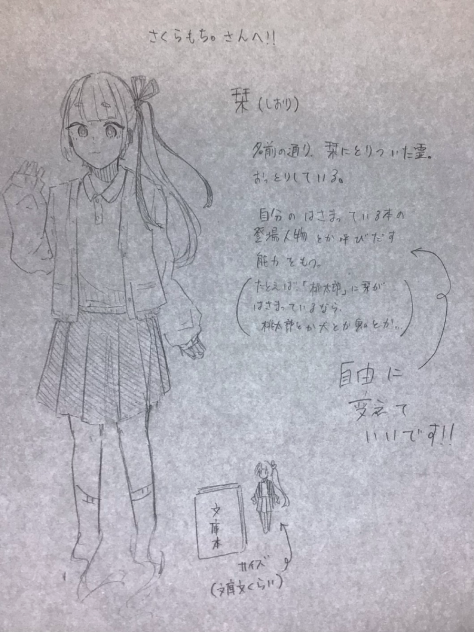 さくらもち。さんへ!!
栞(しおり)
名前の通り、栞にとりついた霊。
おっとりしている。
自分のはさまっている本の
登場人物とか呼びだす
能力をもつ。
(たとえば、「桃太郎」に栞が
はさまっているなら
桃太郎とか犬とか鬼とか。)
自由に
変えて
いいです!!
文庫本
サイズ
(文庫本くらい)